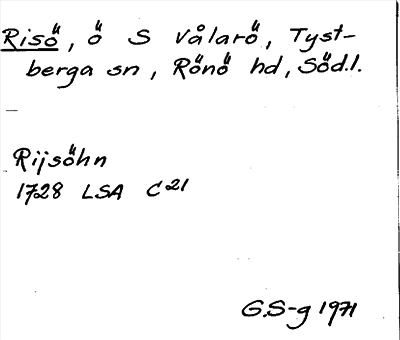 Risö, ö S Vålarö, Tyst-
berga sn, Rönö hd, Södl.
Rijsöhn
1728 LSA C21
G.S-g 1971